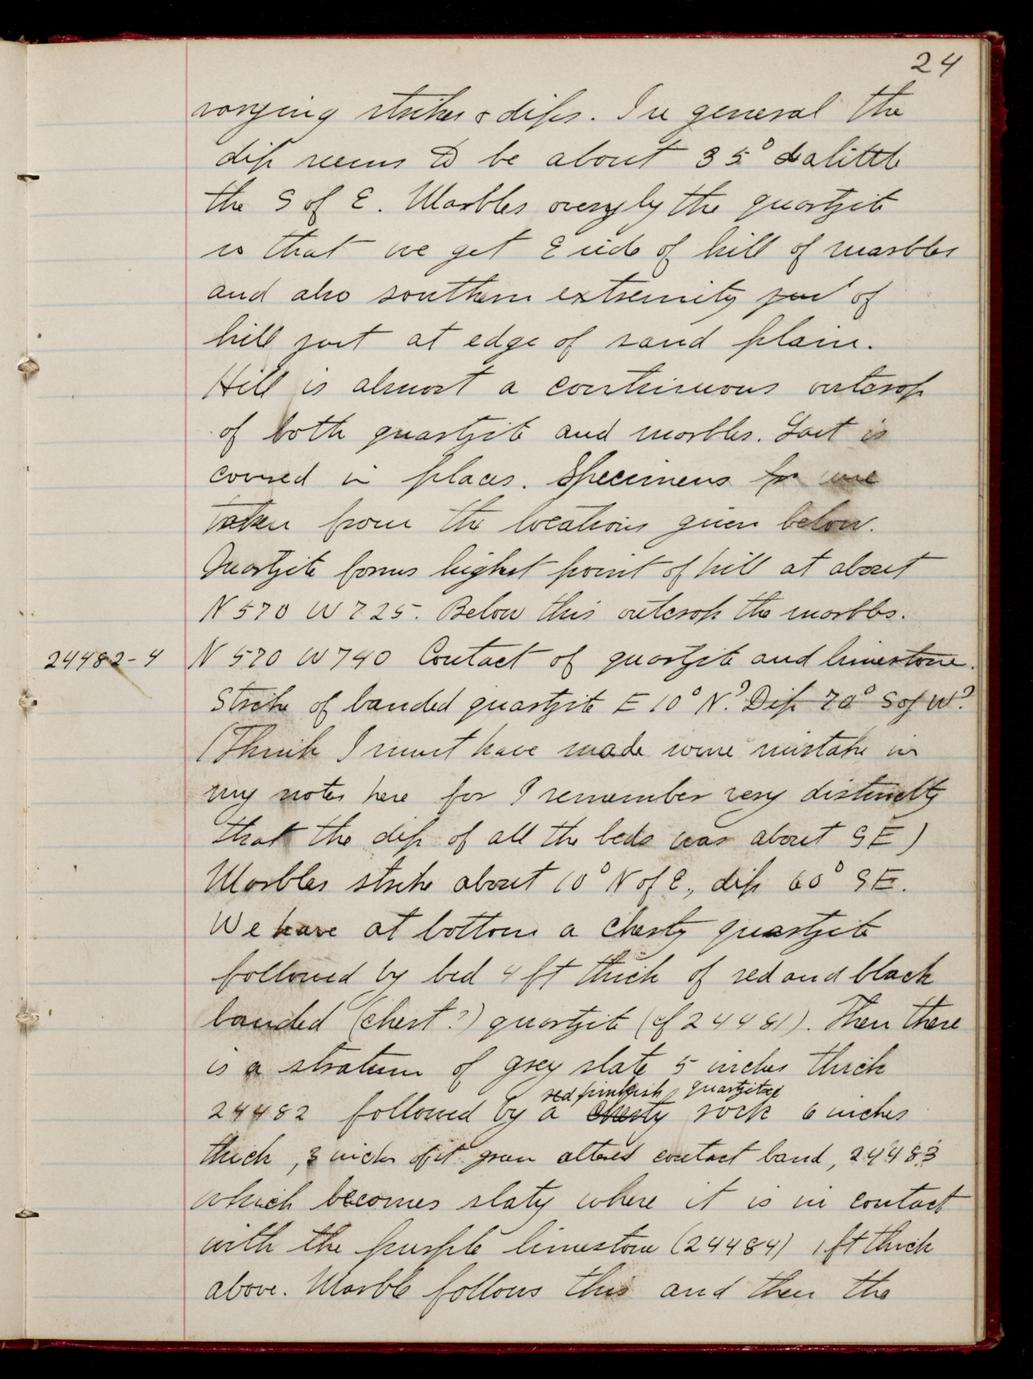 24
varying strikes & dips. In general the
dip seems to be about 35° a little
the S of E. Marbles overly by the quartzite
so that we get E side of hill of marbles
and also southern extremity of
hill just at edge of sand plain.
Hill is almost a continuous outcrop
of both quartzite and marbles. Last is
covered in places. Specimens were
taken from the locations given below.
Quartzite forms highest point of hill at about
N 570 W 725. Below this outcrop the marbles.
24482-4 N 570 W 740 Contact of quartzite and limestone.
Strike of banded quartzite E 10° N.? Dip 70° S of W?
(Think I must have made some mistake in
my notes here for I remember very distinctly
that the dip of all the beds was about SE)
Marbles strike about 10° N of E., dip 60° SE.
We have at bottom a cherty quartzite
followed by bed 4 ft thick of red and black
banded (chert?) quartzite (cf 24481). Then there
is a stratum of grey slate 5 inches thick
red pinkish quartzitic
24482 followed by a cherty rock 6 inches
thick, 3 inches of it green altered contact band, 24483
which becomes slaty where it is in contact
with the purple limestone (24484) 1 ft thick
above. Marble follows this and then the